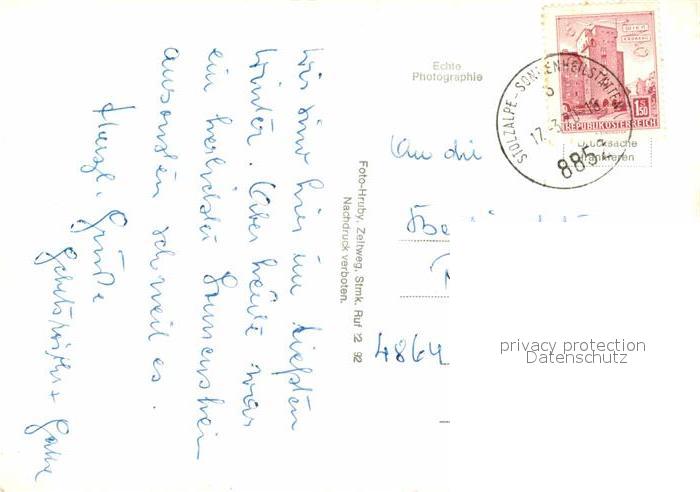 Wir sind hier im tiefsten
Winter. Aber heute war
ein herrlicher Sonnenschein
ansonsten schneit es.
Herzl. Grüße
Foto-Hruby, Zeltweg, Stmk. Ruf 12 92
Nachdruck verboten.
Echte
Photographie
WIEN
ERDBERG
1.50
REPUBLIK ÖSTERREICH
STOLZALPE-SONNENHEILSTÄTTEN
17.-3.
8852
Drucksache
frankieren
An die
4864
privacy protection
Datenschutz